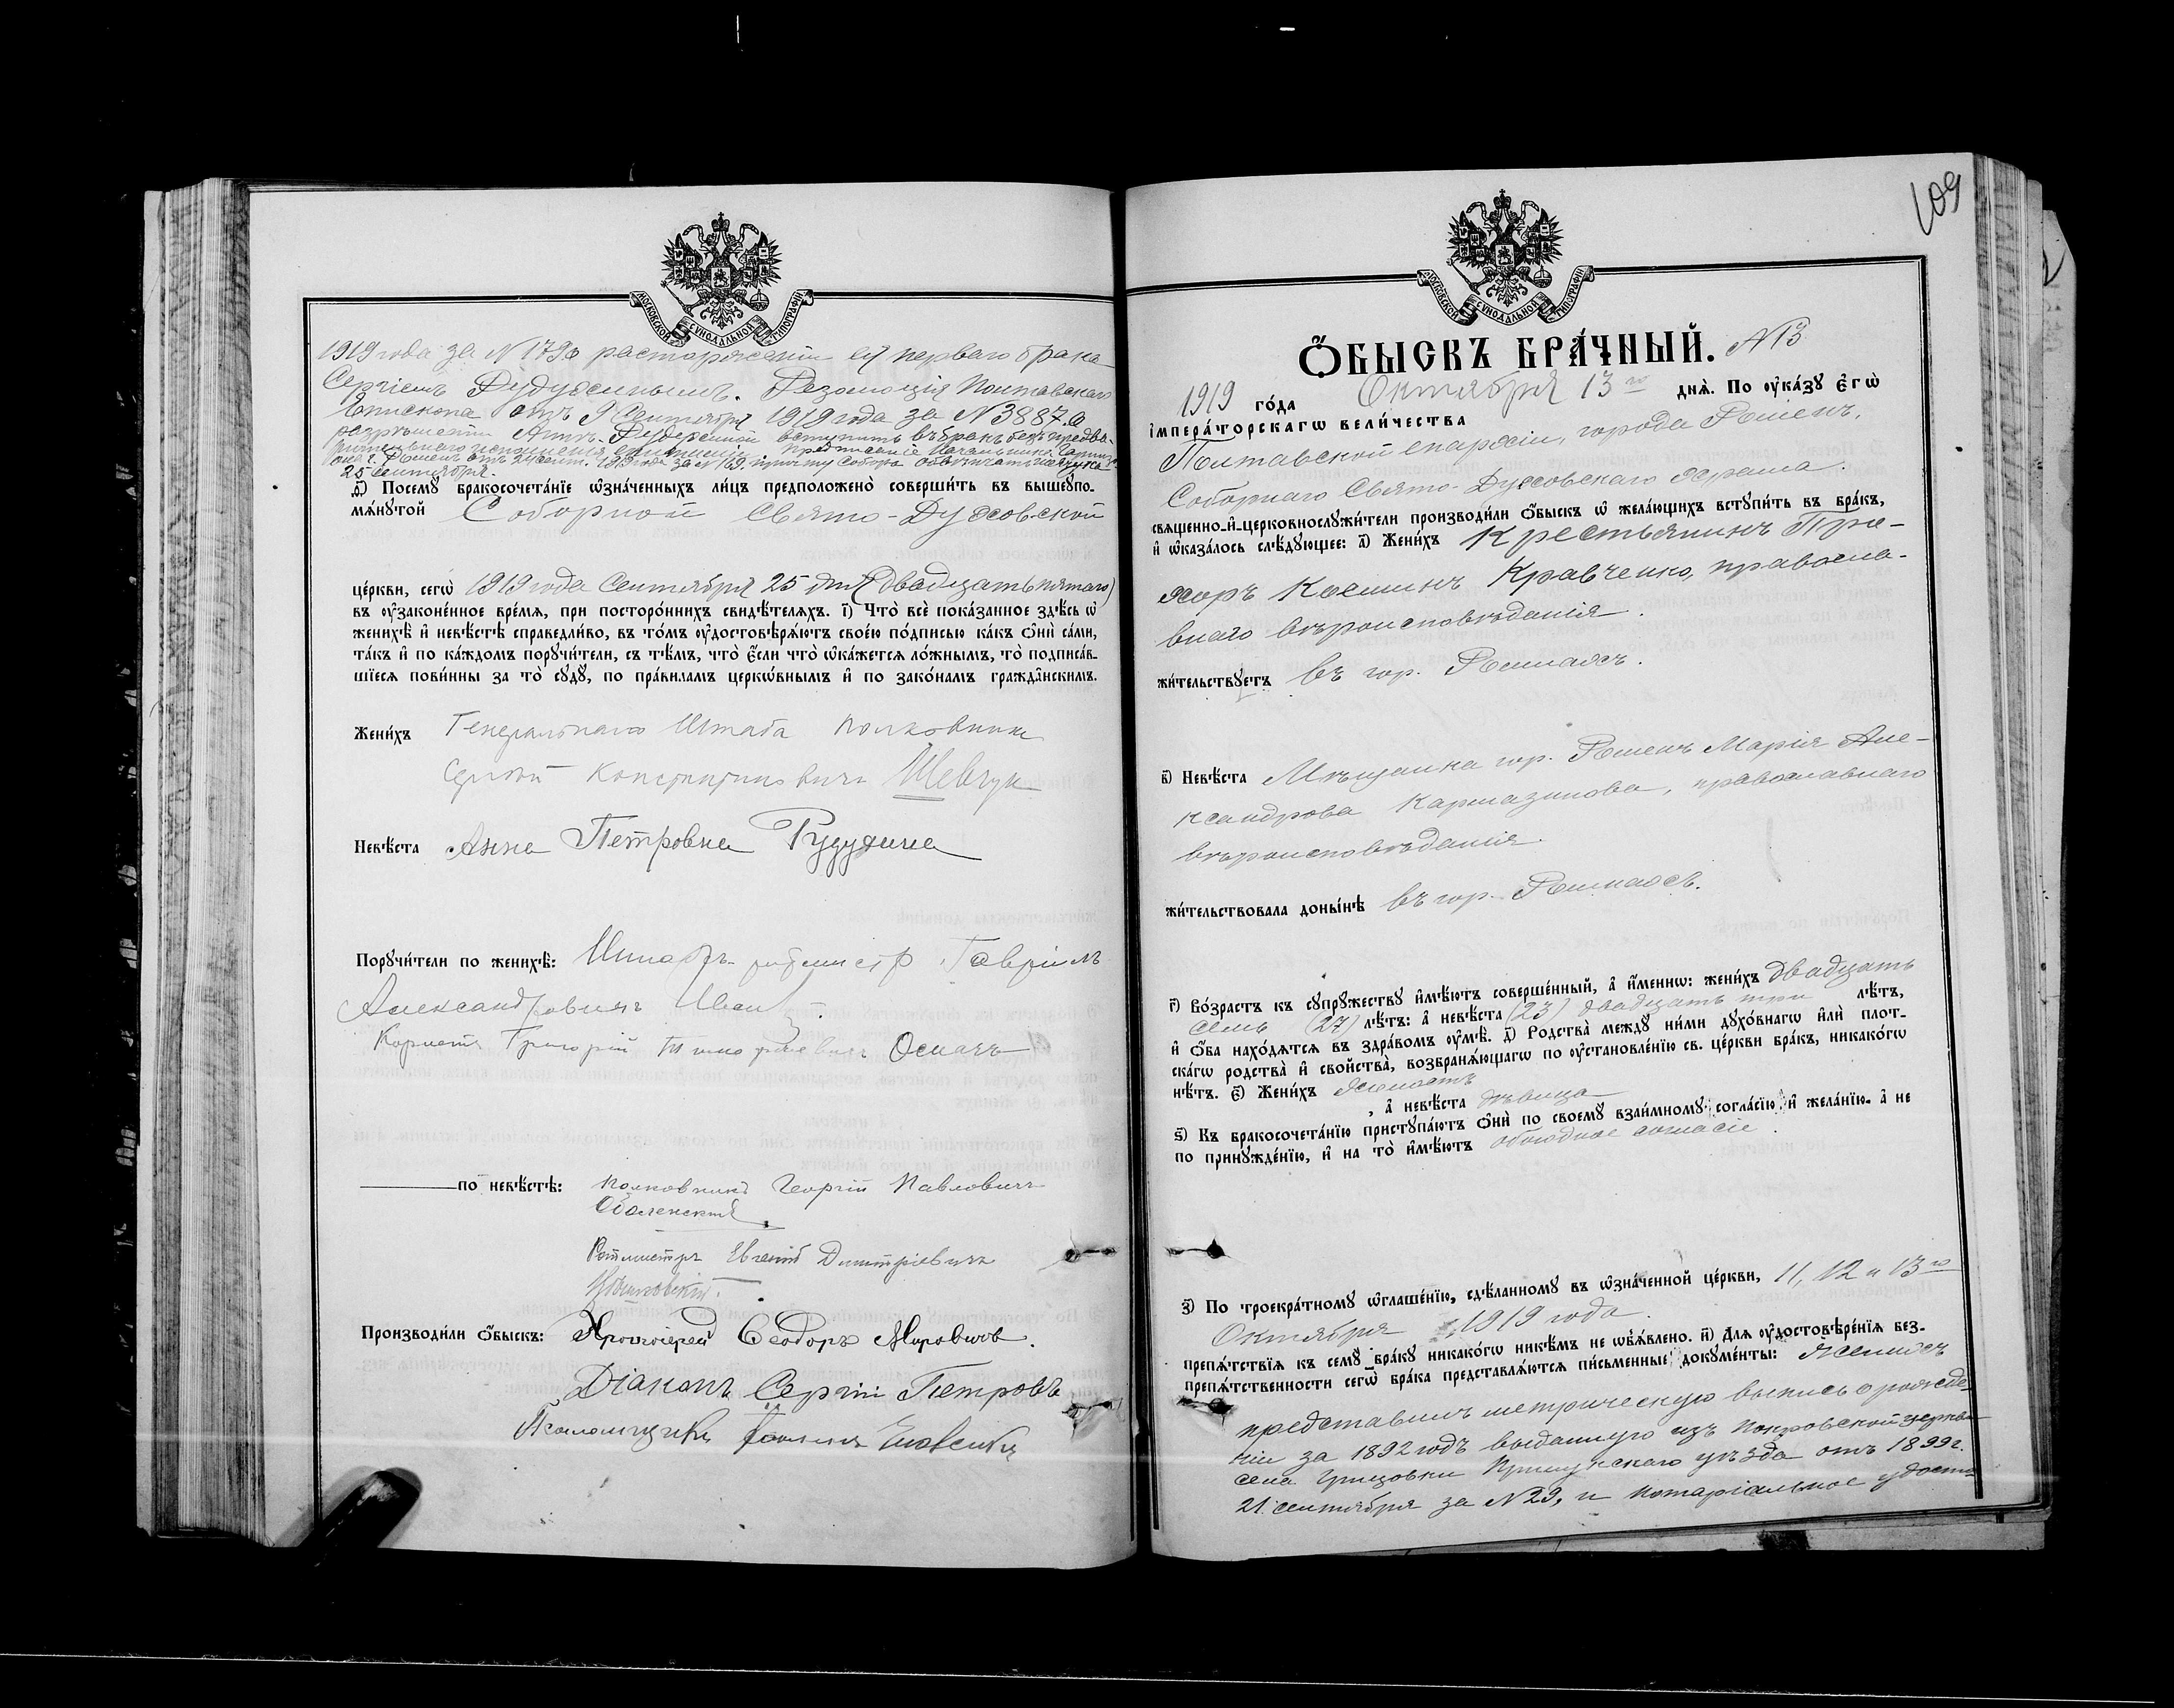 1919 года за N 1790 расторженіи ея перваго брака
Сергіемъ Резолюція Полтавскаго
Епископа отъ 9 Сентября 1919 года за N 3887 о
разрѣшеніи вступить въ бракъ безъ
предписаніе Начальника
Роменъ отъ 24 сент. 1919 года за N 169
25 сентября.
д҃і) Посемꙋ бракосочета́нїе ѡ҆зна́ченныхъ ли́цъ предположено̀ соверши́ть въ вышеꙋпо-
мѧ́нꙋтой Соборной Свято-Духовской
це́ркви, сегѡ̀ 1919 года Сентября 25 дня (двадцать пятаго)
въ ᲂу҆зако́ненное вре́мѧ, при посторо́ннихъ свидѣ́телѧхъ. і҃) Что̀ всѐ пока́занное здѣ́сь ѡ҆
женихѣ̀ и҆ невѣ́стѣ справедли́во, въ то́мъ ᲂу҆достовѣрѧ́ютъ свое́ю по́дписью ка́къ ѻ҆нѝ са́ми,
та́къ и҆ по ка́ждомъ порꙋчи́тели, съ тѣ́мъ, что̀ є҆́сли что̀ ѡ҆ка́жетсѧ ло́жнымъ, то̀ подписа́в-
шїесѧ пови́нны за то̀ сꙋдꙋ̀, по пра́виламъ церкѡ́внымъ и҆ по зако́намъ гражда̂нскимъ.
Жени́хъ Генеральнаго Штаба полковникъ
Сергѣй Константиновичъ Шевчук
Невѣ́ста Анна Петровна
Порꙋчи́тели по женихѣ̀: ротмистр Гавріилъ
Александровичъ
Корнетъ Григорій Осмакъ
по невѣ́стѣ: полковникъ Георгій Павловичъ
Оболенскій
Ротмистръ Евгеній Димитріевичъ
Производи́ли ѻ҆́быскъ: Протоіерей Ѳеодоръ
Діаконъ Сергій Петровъ
Псаломщикъ
109
МОСКОВСКОЙ СѴНОДАЛЬНОЙ ТИПОГРАФІИ
МОСКОВСКОЙ СѴНОДАЛЬНОЙ ТИПОГРАФІИ
Ѻ҆́БЫСКЪ БРА́ЧНЫЙ. N 13
1919 го́да Октября 13го днѧ̀. По ᲂу҆ка́зꙋ Є҆гѡ̀
І҆мпера́торскагѡ вели́чества
Полтавской епархіи, города Роменъ,
Соборнаго Свято-Духовскаго храма.
свѧщенно-и҆-церковнослꙋжи́тели производи́ли ѻ҆́быскъ ѡ҆ жела́ющихъ встꙋпи́ть въ бра́къ,
и҆ ѡ҆каза́лось слѣ́дꙋющее: а҃) Жени́хъ Крестьянинъ Про-
хоръ Косминъ Кравченко, правосла-
внаго вѣроисповѣданія.
жи́тельствꙋетъ въ гор. Ромнахъ.
в҃) Невѣ́ста Мѣщанка гор. Роменъ Марія Але-
ксандрова Кармазинова, православнаго
вѣроисповѣданія.
жи́тельствовала доны́нѣ въ гор. Ромнахъ.
г҃) Во́зрастъ къ сꙋпрꙋ́жествꙋ и҆мѣ́ютъ соверше́нный, а҆ и҆́меннѡ: жени́хъ двадцать
семь (27) лѣ́тъ: а҆ невѣ́ста (23) двадцать три лѣ́тъ,
и҆ ѻ҆́ба нахо́дѧтсѧ въ здра́вомъ ᲂу҆мѣ̀. д҃) Родства̀ междꙋ̀ ни́ми дꙋхо́внагѡ и҆лѝ плот-
ска́гѡ родства̀ и҆ сво́йства̀, возбранѧ́ющагѡ по ᲂу҆становле́нїю св. це́ркви бра́къ, никако́гѡ
нѣ́тъ. є҃) Жени́хъ холостъ
, а҆ невѣ́ста дѣвица
ѕ҃) Къ бракосочета́нїю пристꙋпа́ютъ ѻ҆нѝ по своемꙋ̀ взаи́мномꙋ согла́сїю и҆ жела́нїю. а҆ не
по принꙋжде́нїю, и҆ на то̀ и҆мѣ́ютъ обоюдное согласіе.
з҃) По троекра́тномꙋ ѡ҆глаше́нїю, сдѣ́ланномꙋ въ ѡ҆зна́ченной це́ркви, 11, 12 и 13го
Октября 1919 года.
препѧ́тствїѧ къ семꙋ̀ бра́кꙋ никако́гѡ никѣ́мъ не ѡ҆бъѧ́влено. и҃) Длѧ ᲂу҆достовѣре́нїѧ без-
препѧ́тственности сегѡ̀ бра́ка представлѧ́ютсѧ пи́сьменные докꙋме́нты: Женихъ
представилъ метрическую выпись о рожде-
ніи за 1892 годъ выданную изъ Покровской церкви
села Грицовки Прилукскаго уѣзда отъ 1899 г.
21 сентября за N 29, и нотаріальное удосто-